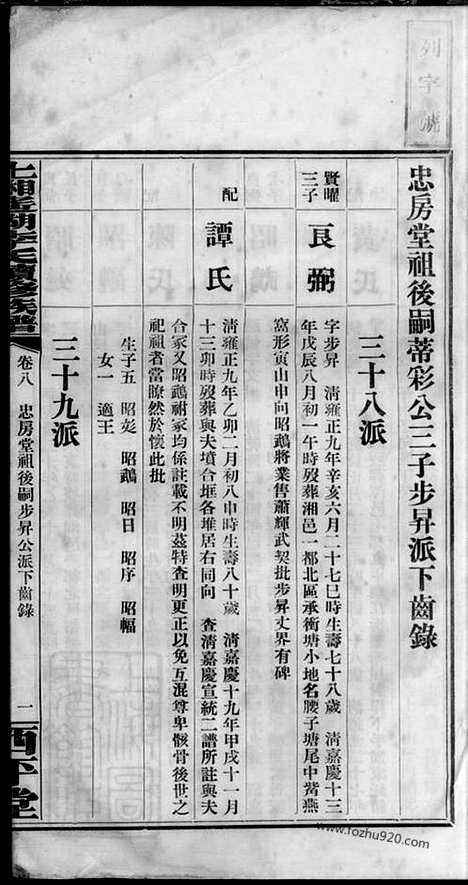 列字號
忠房堂祖後嗣蒂彩公三子步昇派下齒錄
三十八派
賢曜三子
良弼
字步昇　清雍正九年辛亥六月二十七巳時生壽七十八歲　清嘉慶十三
年戊辰八月初一午時歿葬湘邑一都北區承衝塘小地名腰子塘尾中嘴燕
窩形寅山申向昭鵡將業售蕭輝武契批步昇丈界有碑
配
譚氏
清雍正九年乙卯二月初八申時生壽八十歲　清嘉慶十九年甲戌十一月
十三卯時歿葬與夫墳合堆各堆居右同向　查清嘉慶宣統二譜所註與夫
合冢又昭鵡祔冢均係註載不明茲特查明更正以免互混尊卑骸骨後世之
祀祖者當瞭然於懷此批
生子五　昭彭　昭鵡　昭日　昭序　昭幅
女一　適王
三十九派
七續修族譜
卷八　忠房堂祖後嗣步昇公派下齒錄
一
西平堂
www.fozhu920.com